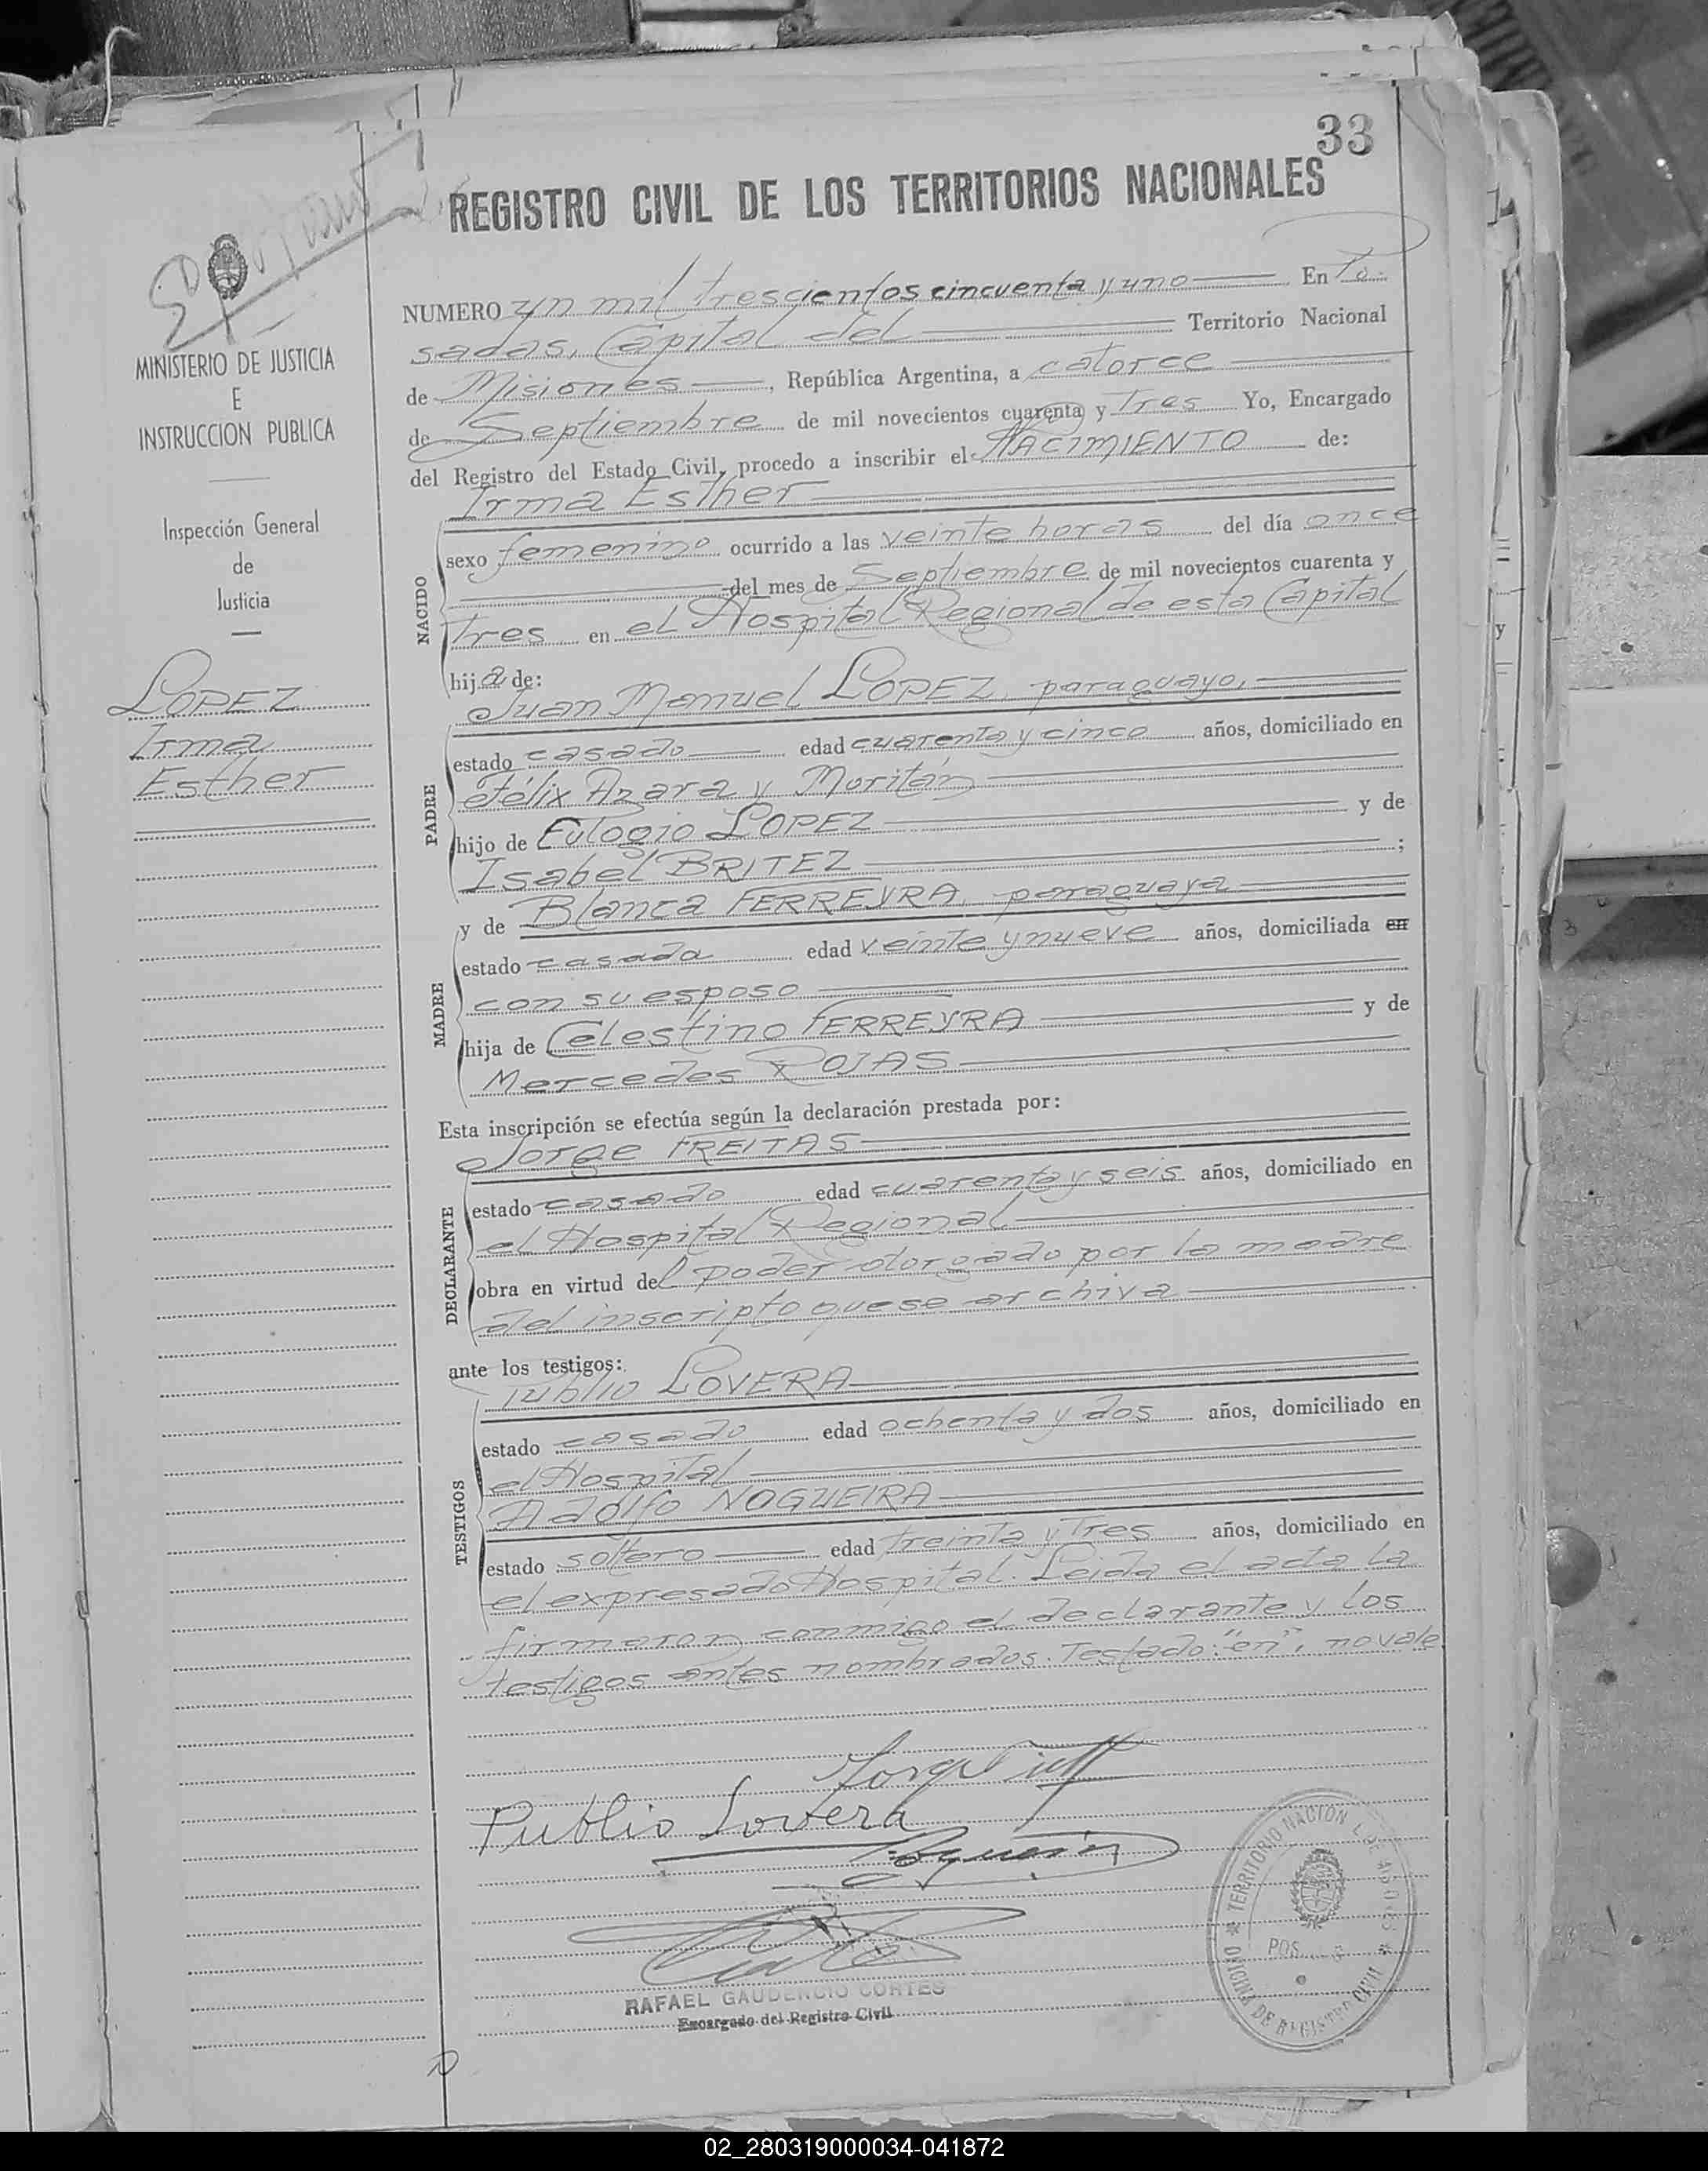 33
REGISTRO CIVIL DE LOS TERRITORIOS NACIONALES
MINISTERIO DE JUSTICIA
E
INSTRUCCION PUBLICA
Inspección General
de
Justicia
LOPEZ
Irma
Esther
NUMERO un mil trescientos cincuenta y uno En Po-
sadas, Capital del Territorio Nacional
de Misiones, República Argentina, a catorce
de Septiembre de mil novecientos cuarenta y Tres Yo, Encargado
del Registro del Estado Civil, procedo a inscribir el NACIMIENTO de:
Irma Esther
NACIDO
sexo femenino ocurrido a las veinte horas del día once
del mes de Septiembre de mil novecientos cuarenta y
Tres en el Hospital Regional de esta Capital
hija de:
Juan Manuel LOPEZ, paraguayo,
PADRE
estado casado edad cuarenta y cinco años, domiciliado en
Félix Azara y Moritán
hijo de Eulogio LOPEZ y de
Isabel BRITEZ ;
y de Blanca FERREYRA, paraguaya
MADRE
estado casada edad veinte y nueve años, domiciliada en
con su esposo
hija de Celestino FERREYRA y de
Mercedes ROJAS
Esta inscripción se efectúa según la declaración prestada por:
Jorge FREITAS
DECLARANTE
estado casado edad cuarenta y seis años, domiciliado en
el Hospital Regional
obra en virtud del poder otorgado por la madre
del inscripto que se archiva
ante los testigos:
Publio LOVERA
TESTIGOS
estado casado edad ochenta y dos años, domiciliado en
el Hospital
Adolfo NOGUEIRA
estado soltero edad treinta y Tres años, domiciliado en
el expresado Hospital. Leida el acta la
firmaron conmigo el declarante y los
testigos antes nombrados. Testado: "en", no vale
Publio Lovera
RAFAEL GAUDENCIO CORTES
Encargado del Registro Civil
TERRITORIO NACION L DE
POS
OFICINA DE REGISTRO CIVIL
02_280319000034-041872